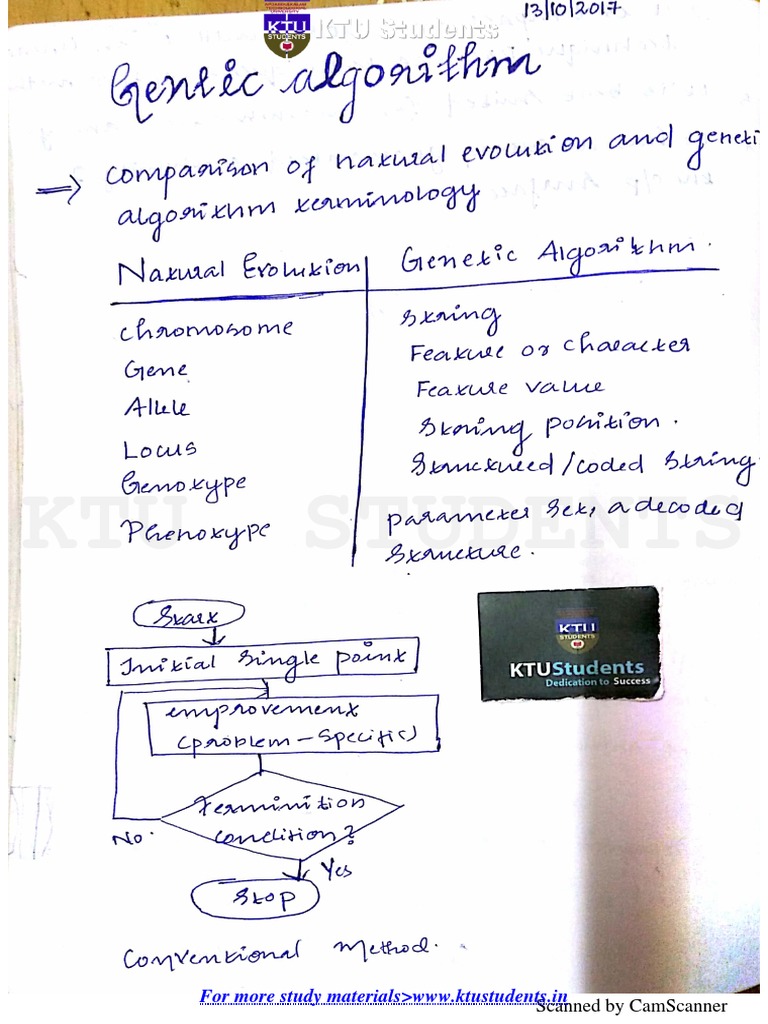 13/10/2017
KTU
STUDENTS
KTU Students
Genetic algorithm
⇒ comparison of natural evolution and geneti
algorithm terminology
Natural Evolution | Genetic Algorithm.
chromosome String
Gene Feature or character
Allele Feature value
Locus String position.
Genotype Structured/coded string
Phenotype parameter set, a decoded
structure.
KTU STUDENTS
Start
Initial single point
KTU
STUDENTS
KTUStudents
Dedication to Success
emprovement
(problem-specific)
Terminition
condition?
No.
Yes
Stop
Conventional Method.
For more study materials>www.ktustudents.in
Scanned by CamScanner